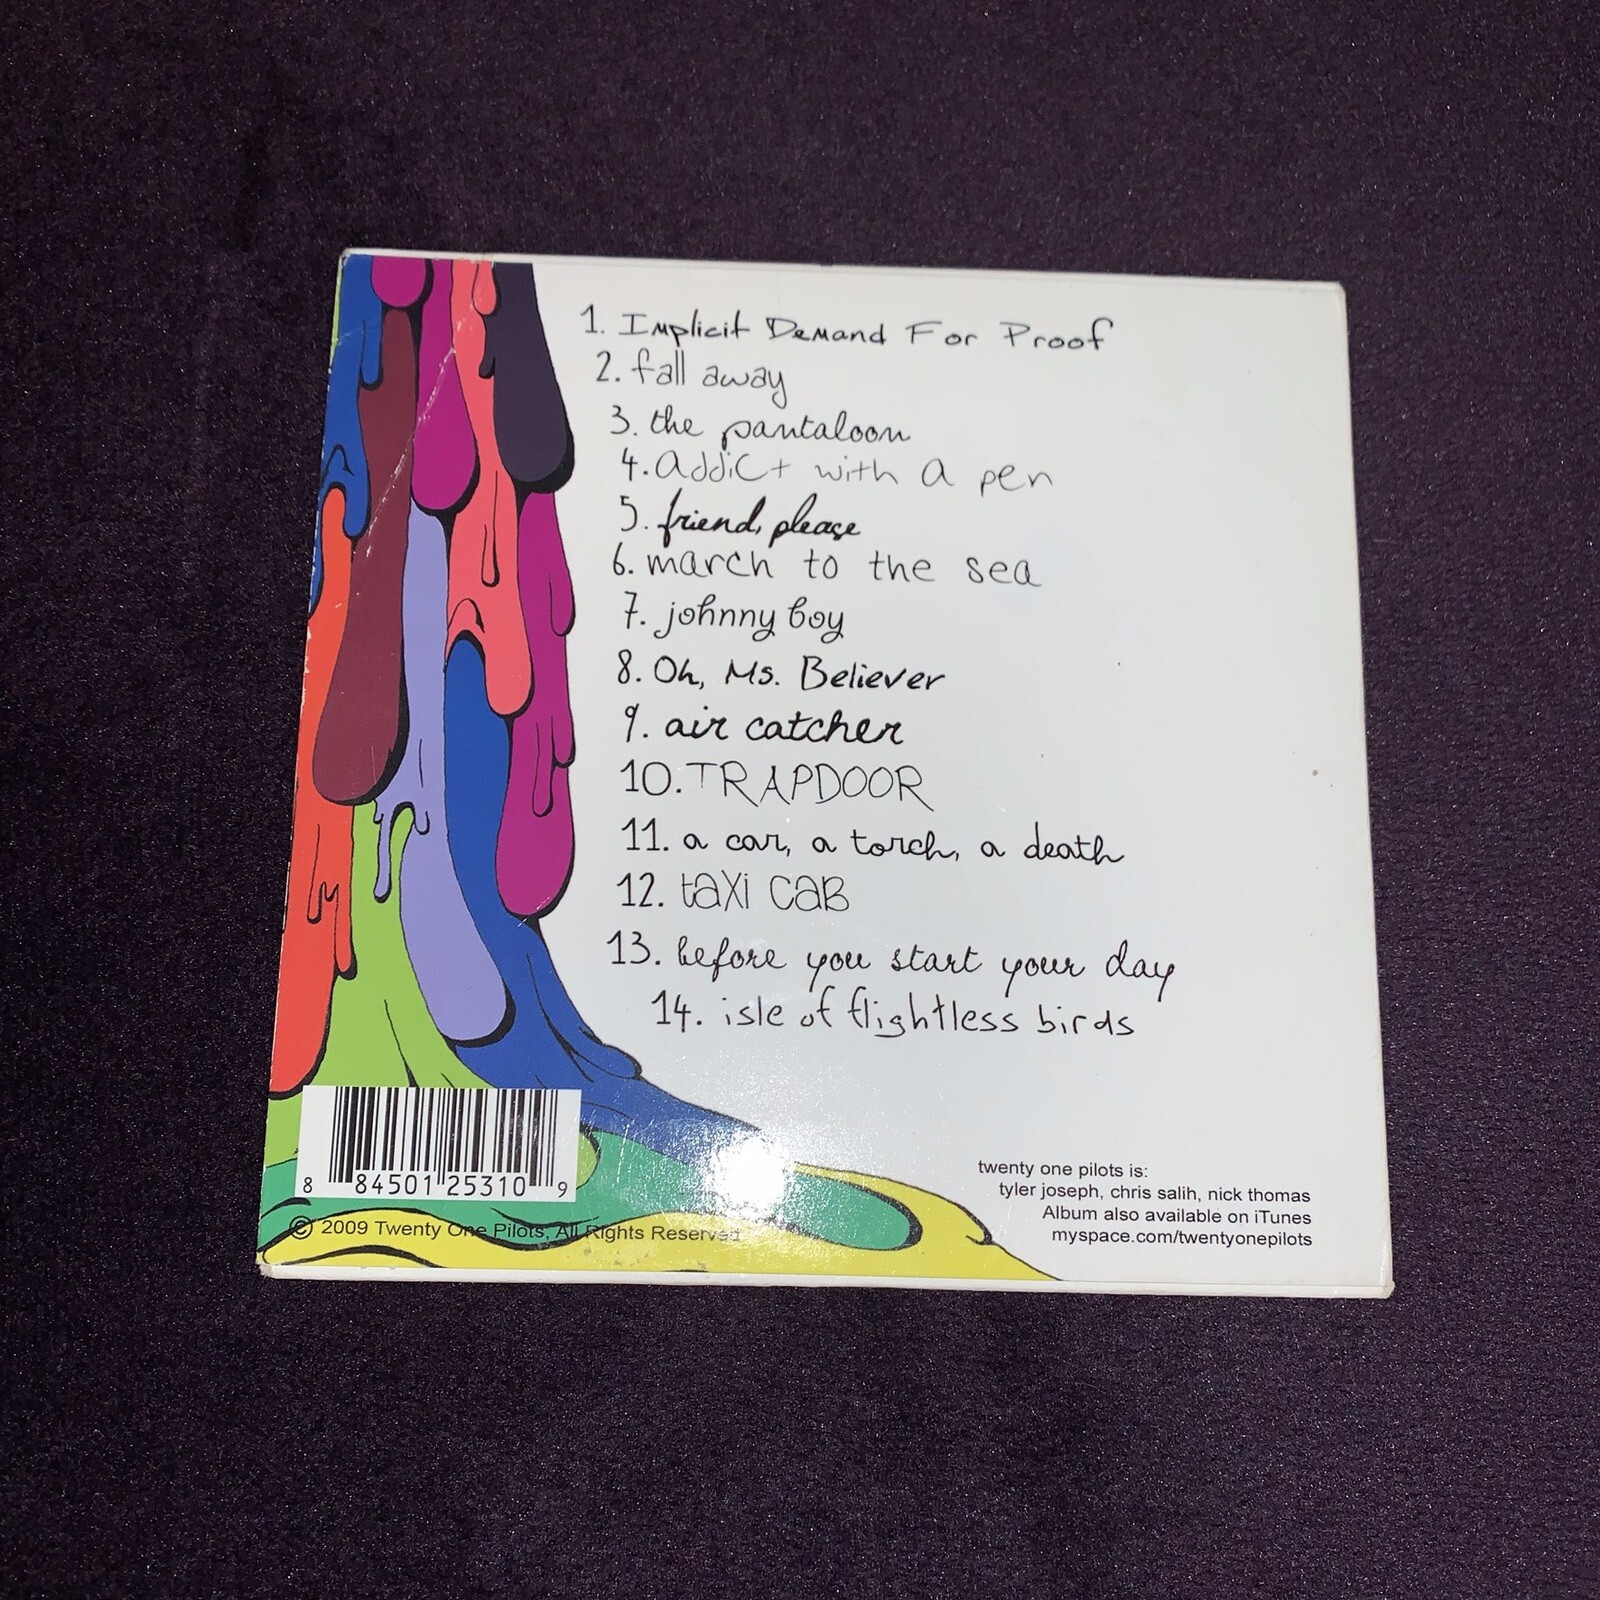 1. Implicit Demand For Proof
2. fall away
3. the pantaloon
4. addict with a pen
5. friend, please
6. march to the sea
7. johnny boy
8. Oh, Ms. Believer
9. air catcher
10. TRAPDOOR
11. a car, a torch, a death
12. taxi caB
13. before you start your day
14. isle of flightless birds
8 84501 25310 9
© 2009 Twenty One Pilots, All Rights Reserved
twenty one pilots is:
tyler joseph, chris salih, nick thomas
Album also available on iTunes
myspace.com/twentyonepilots